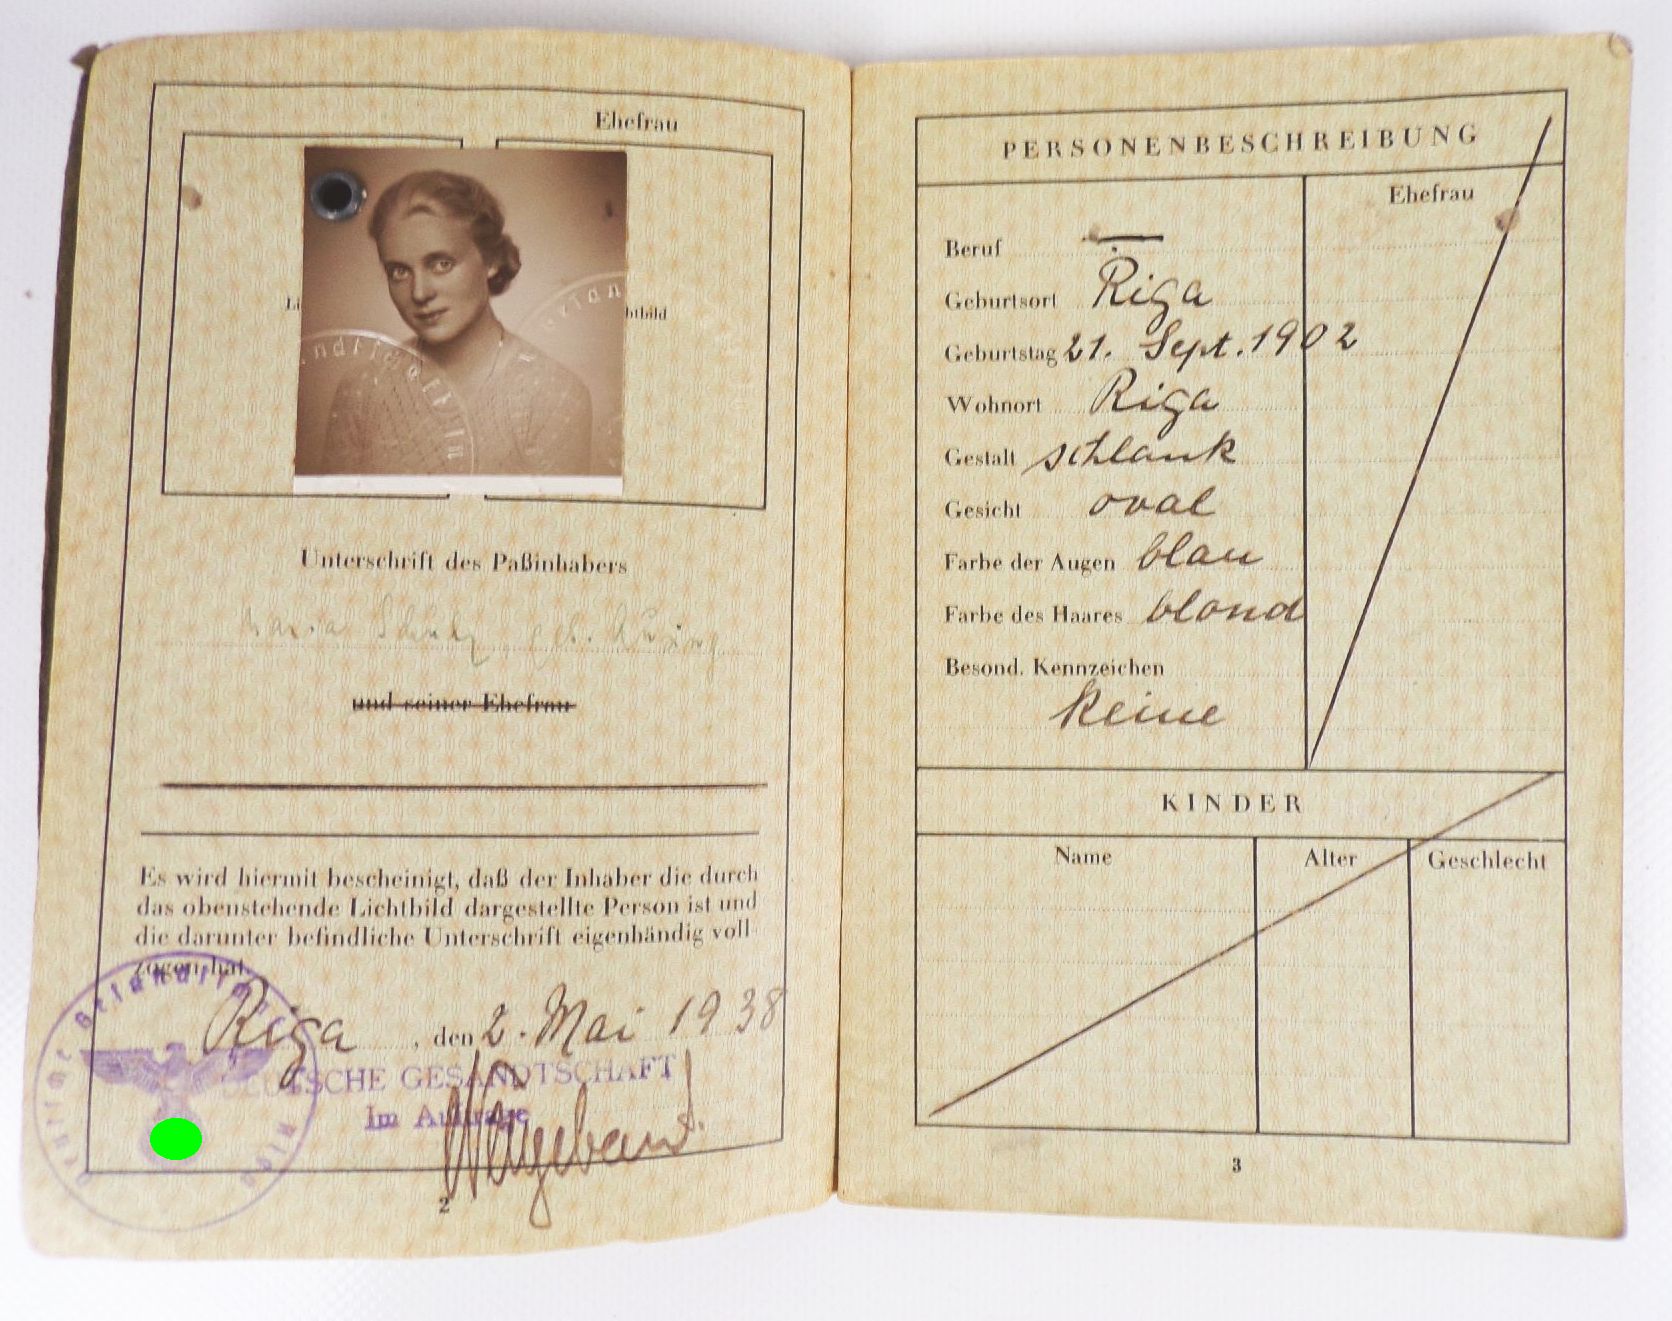 Ehefrau
Unterschrift des Paßinhabers
Maria Schulz geb.
und seiner Ehefrau
Es wird hiermit bescheinigt, daß der Inhaber die durch
das obenstehende Lichtbild dargestellte Person ist und
die darunter befindliche Unterschrift eigenhändig voll-
zogen hat.
Riga, den 2. Mai 1938
DEUTSCHE GESANDTSCHAFT
Im Auftrage
2
PERSONENBESCHREIBUNG
Ehefrau
Beruf —
Geburtsort Riga
Geburtstag 21. Sept. 1902
Wohnort Riga
Gestalt schlank
Gesicht oval
Farbe der Augen blau
Farbe des Haares blond
Besond. Kennzeichen
keine
KINDER
Name Alter Geschlecht
3